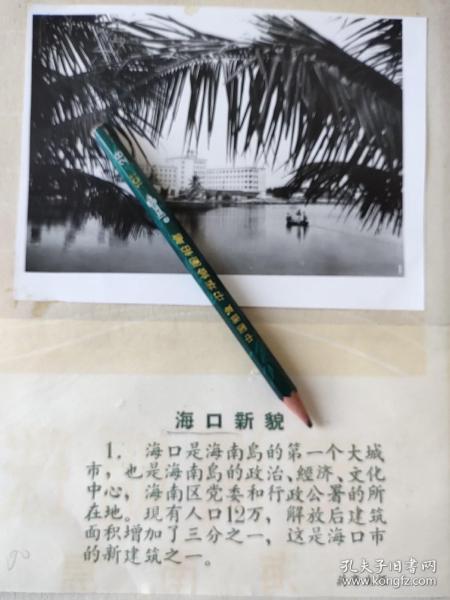 2B
101
中国制造 中华绘图铅笔
海口新貌
1. 海口是海南島的第一个大城
市，也是海南島的政治、經济、文化
中心，海南区党委和行政公署的所
在地。现有人口12万，解放后建筑
面积增加了三分之一，这是海口市
的新建筑之一。
孔夫子旧书网